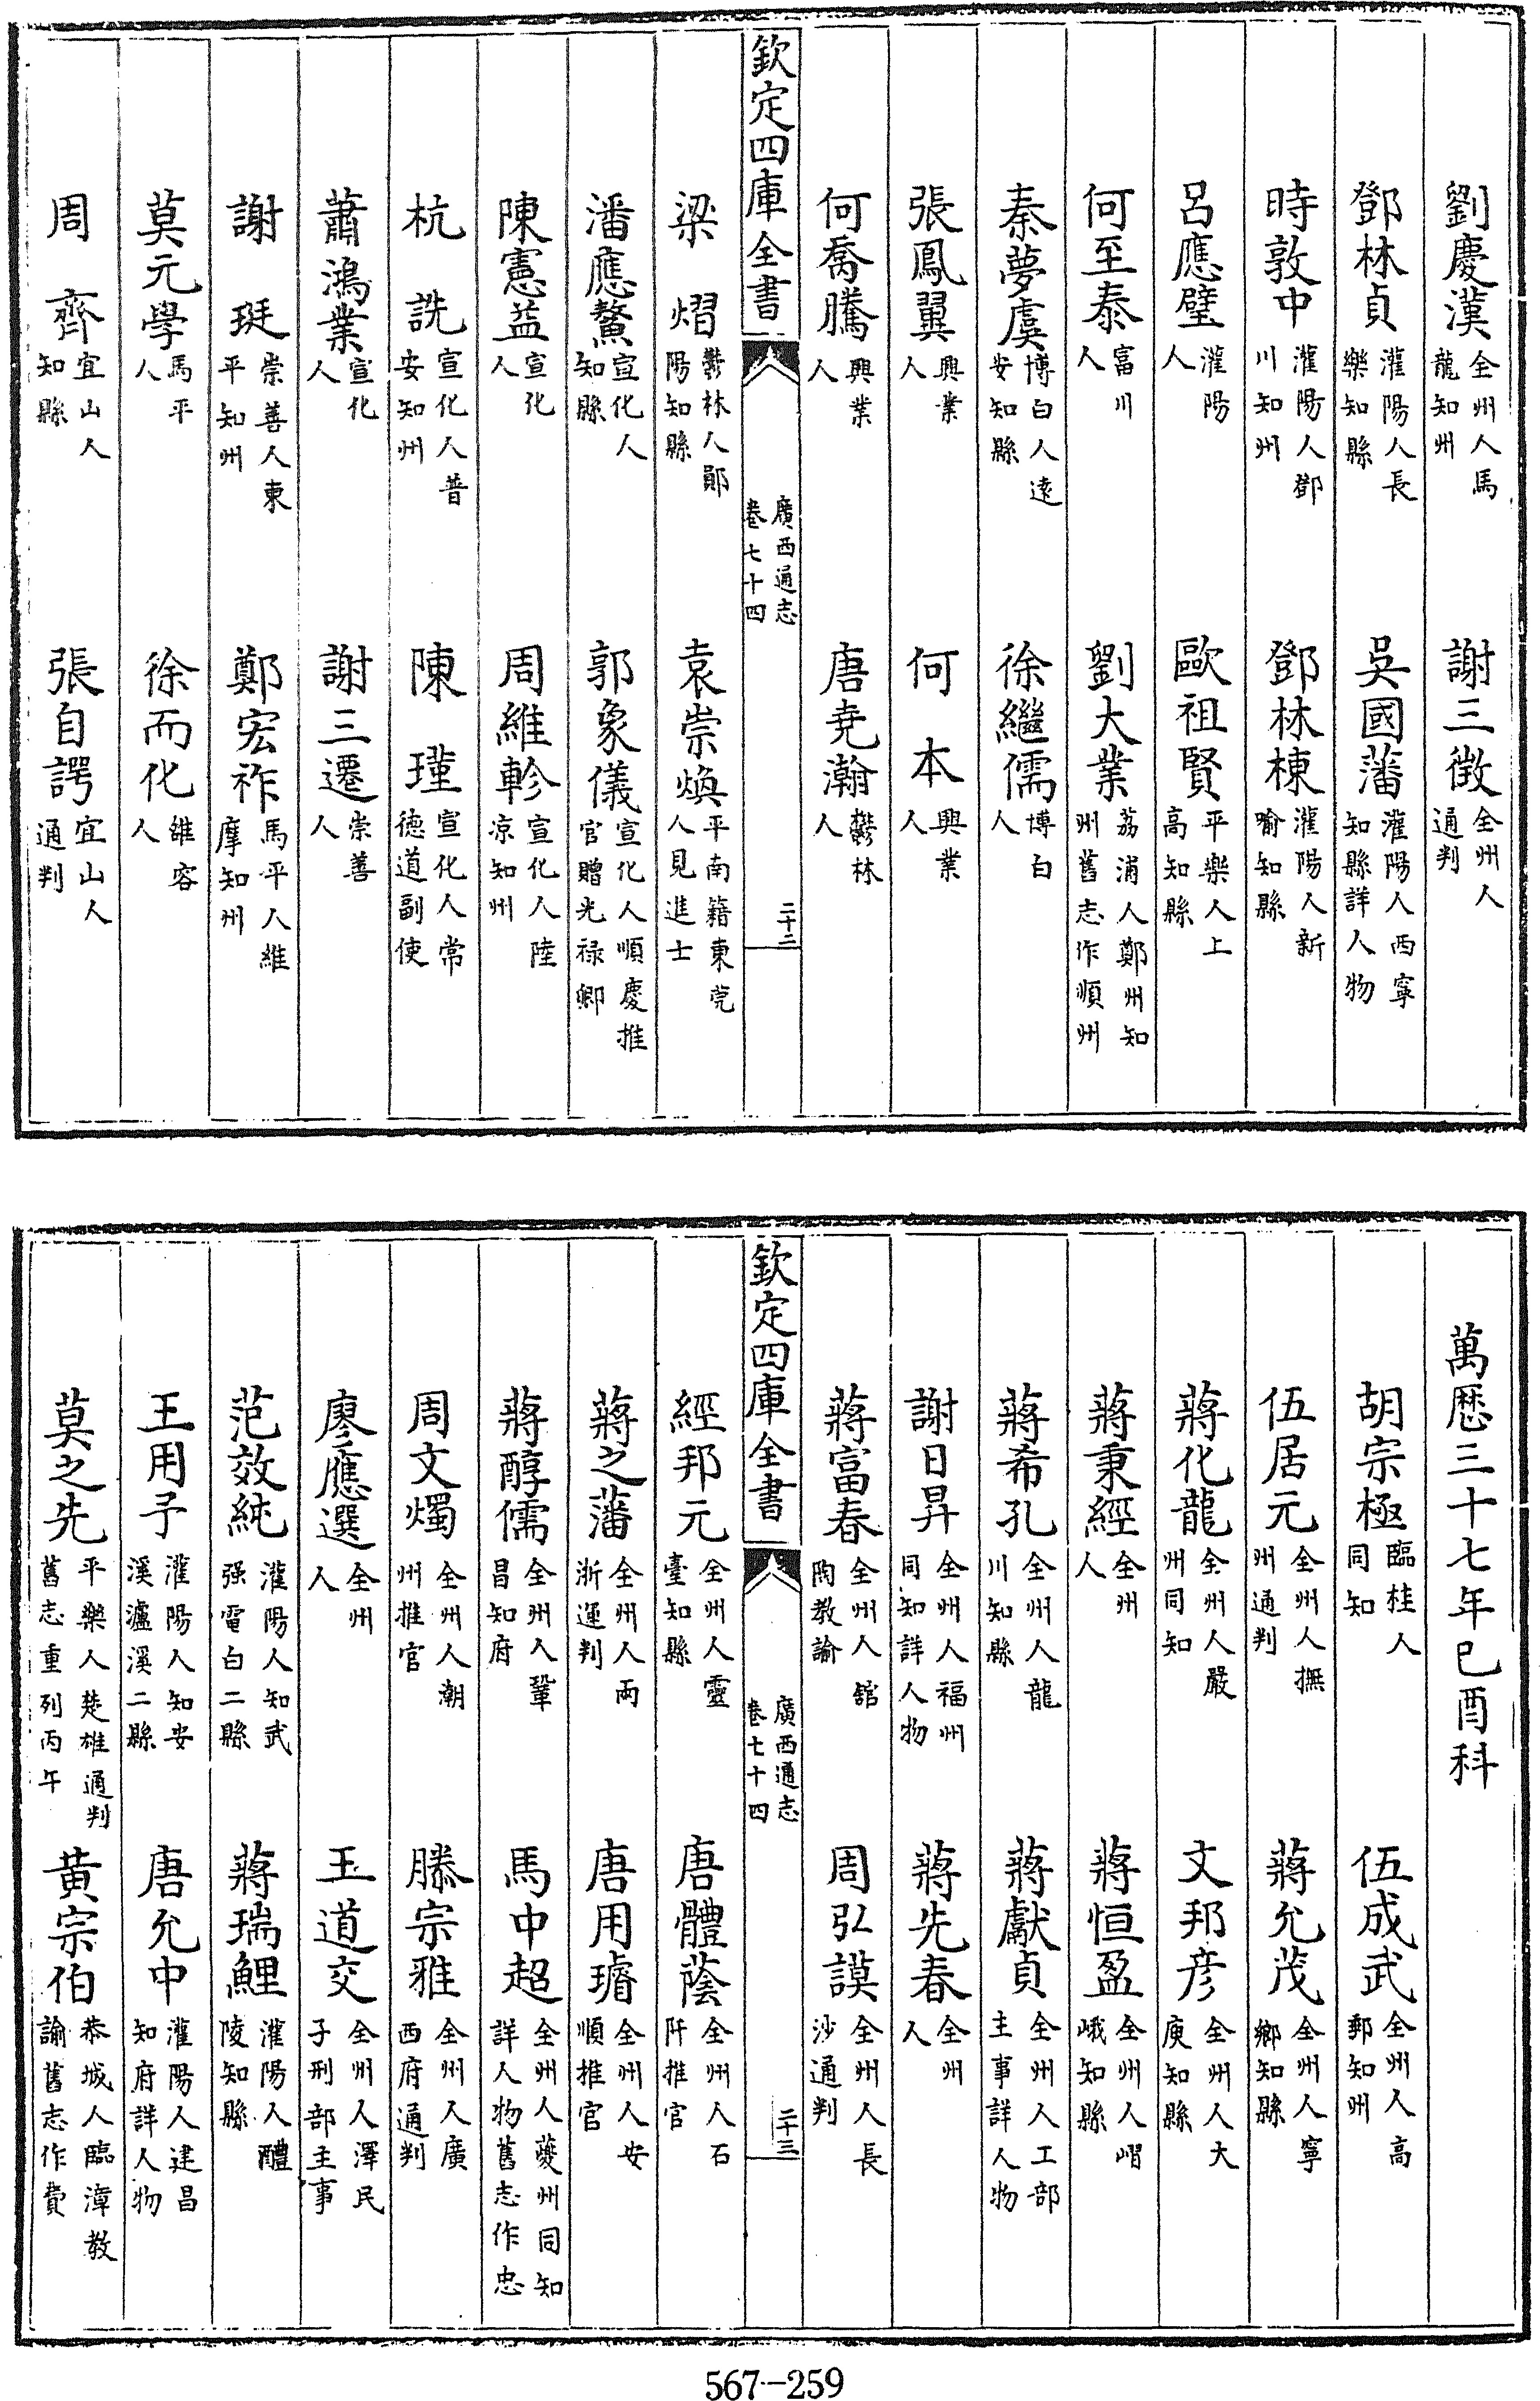 劉慶漢全州人馬龍知州　謝三徴全州人通判
鄧林貞灌陽人長樂知縣　吳國藩灌陽人西寧知縣詳人物
時敦中灌陽人鄧川知州　鄧林棟灌陽人新喻知縣
呂應璧灌陽人　歐祖賢平樂人上高知縣
何至泰富川人　劉大業荔浦人鄭州知州舊志作順州
秦夢虞博白人遠安知縣　徐繼儒博白人
張鳳翼興業人　何本興業人
何喬騰興業人　唐堯瀚鬱林人
欽定四庫全書　廣西通志卷七十四　二十二
梁熠鬱林人鄖陽知縣　袁崇煥平南籍東莞人見進士
潘應鰲宣化人知縣　郭象儀宣化人順慶推官贈光禄卿
陳憲益宣化人　周維軫宣化人陸凉知州
杭詵宣化人普安知州　陳瑾宣化人常德道副使
蕭鴻業宣化人　謝三遷崇善人
謝珽崇善人東平知州　鄭宏祚馬平人維摩知州
莫元學馬平人　徐而化雒容人
周齊宜山人知縣　張自諤宜山人通判
萬歷三十七年己酉科
胡宗極臨桂人同知　伍成武全州人高郵知州
伍居元全州人撫州通判　蔣允茂全州人寧鄉知縣
蔣化龍全州人嚴州同知　文邦彦全州人大庾知縣
蔣秉經全州人　蔣恒盈全州人嶍峨知縣
蔣希孔全州人龍川知縣　蔣獻貞全州人工部主事詳人物
謝日昇全州人福州同知詳人物　蔣先春全州人
蔣富春全州人舘陶教諭　周弘謨全州人長沙通判
欽定四庫全書　廣西通志卷七十四　二十三
經邦元全州人靈臺知縣　唐體蔭全州人石阡推官
蔣之藩全州人兩浙運判　唐用璿全州人安順推官
蔣醇儒全州人鞏昌知府　馬中超全州人夔州同知詳人物舊志作忠
周文燭全州人潮州推官　滕宗雅全州人廣西府通判
廖應選全州人　王道交全州人澤民子刑部主事
范效純灌陽人知武强電白二縣　蔣瑞鯉灌陽人醴陵知縣
王用予灌陽人知安溪瀘溪二縣　唐允中灌陽人建昌知府詳人物
莫之先平樂人楚雄通判舊志重列丙午　黄宗伯恭城人臨漳教諭舊志作費
567-259